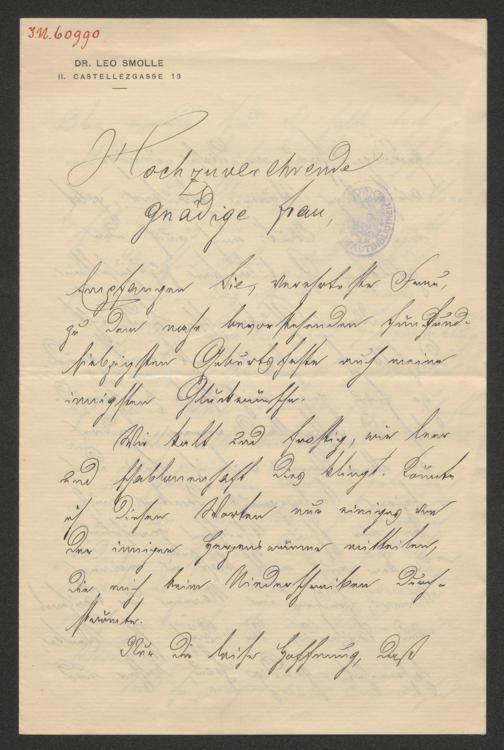 J.N. 60990
DR. LEO SMOLLE
II. CASTELLEZGASSE 13
Hochzuverehrende
gnädige Frau,
Empfangen Sie, verehrteste Frau,
zu dem nahe bevorstehenden fünfund-
siebzigsten Geburtsfeste auch meine
innigsten Glückwünsche.
Wie kalt und frostig, wie leer
und schablonenhaft dies klingt. Könnte
ich diesen Worten nur einiges von
der innigen Herzenswärme mitteilen,
die mich beim Niederschreiben durch-
strömte.
Nur die leise Hoffnung, daß